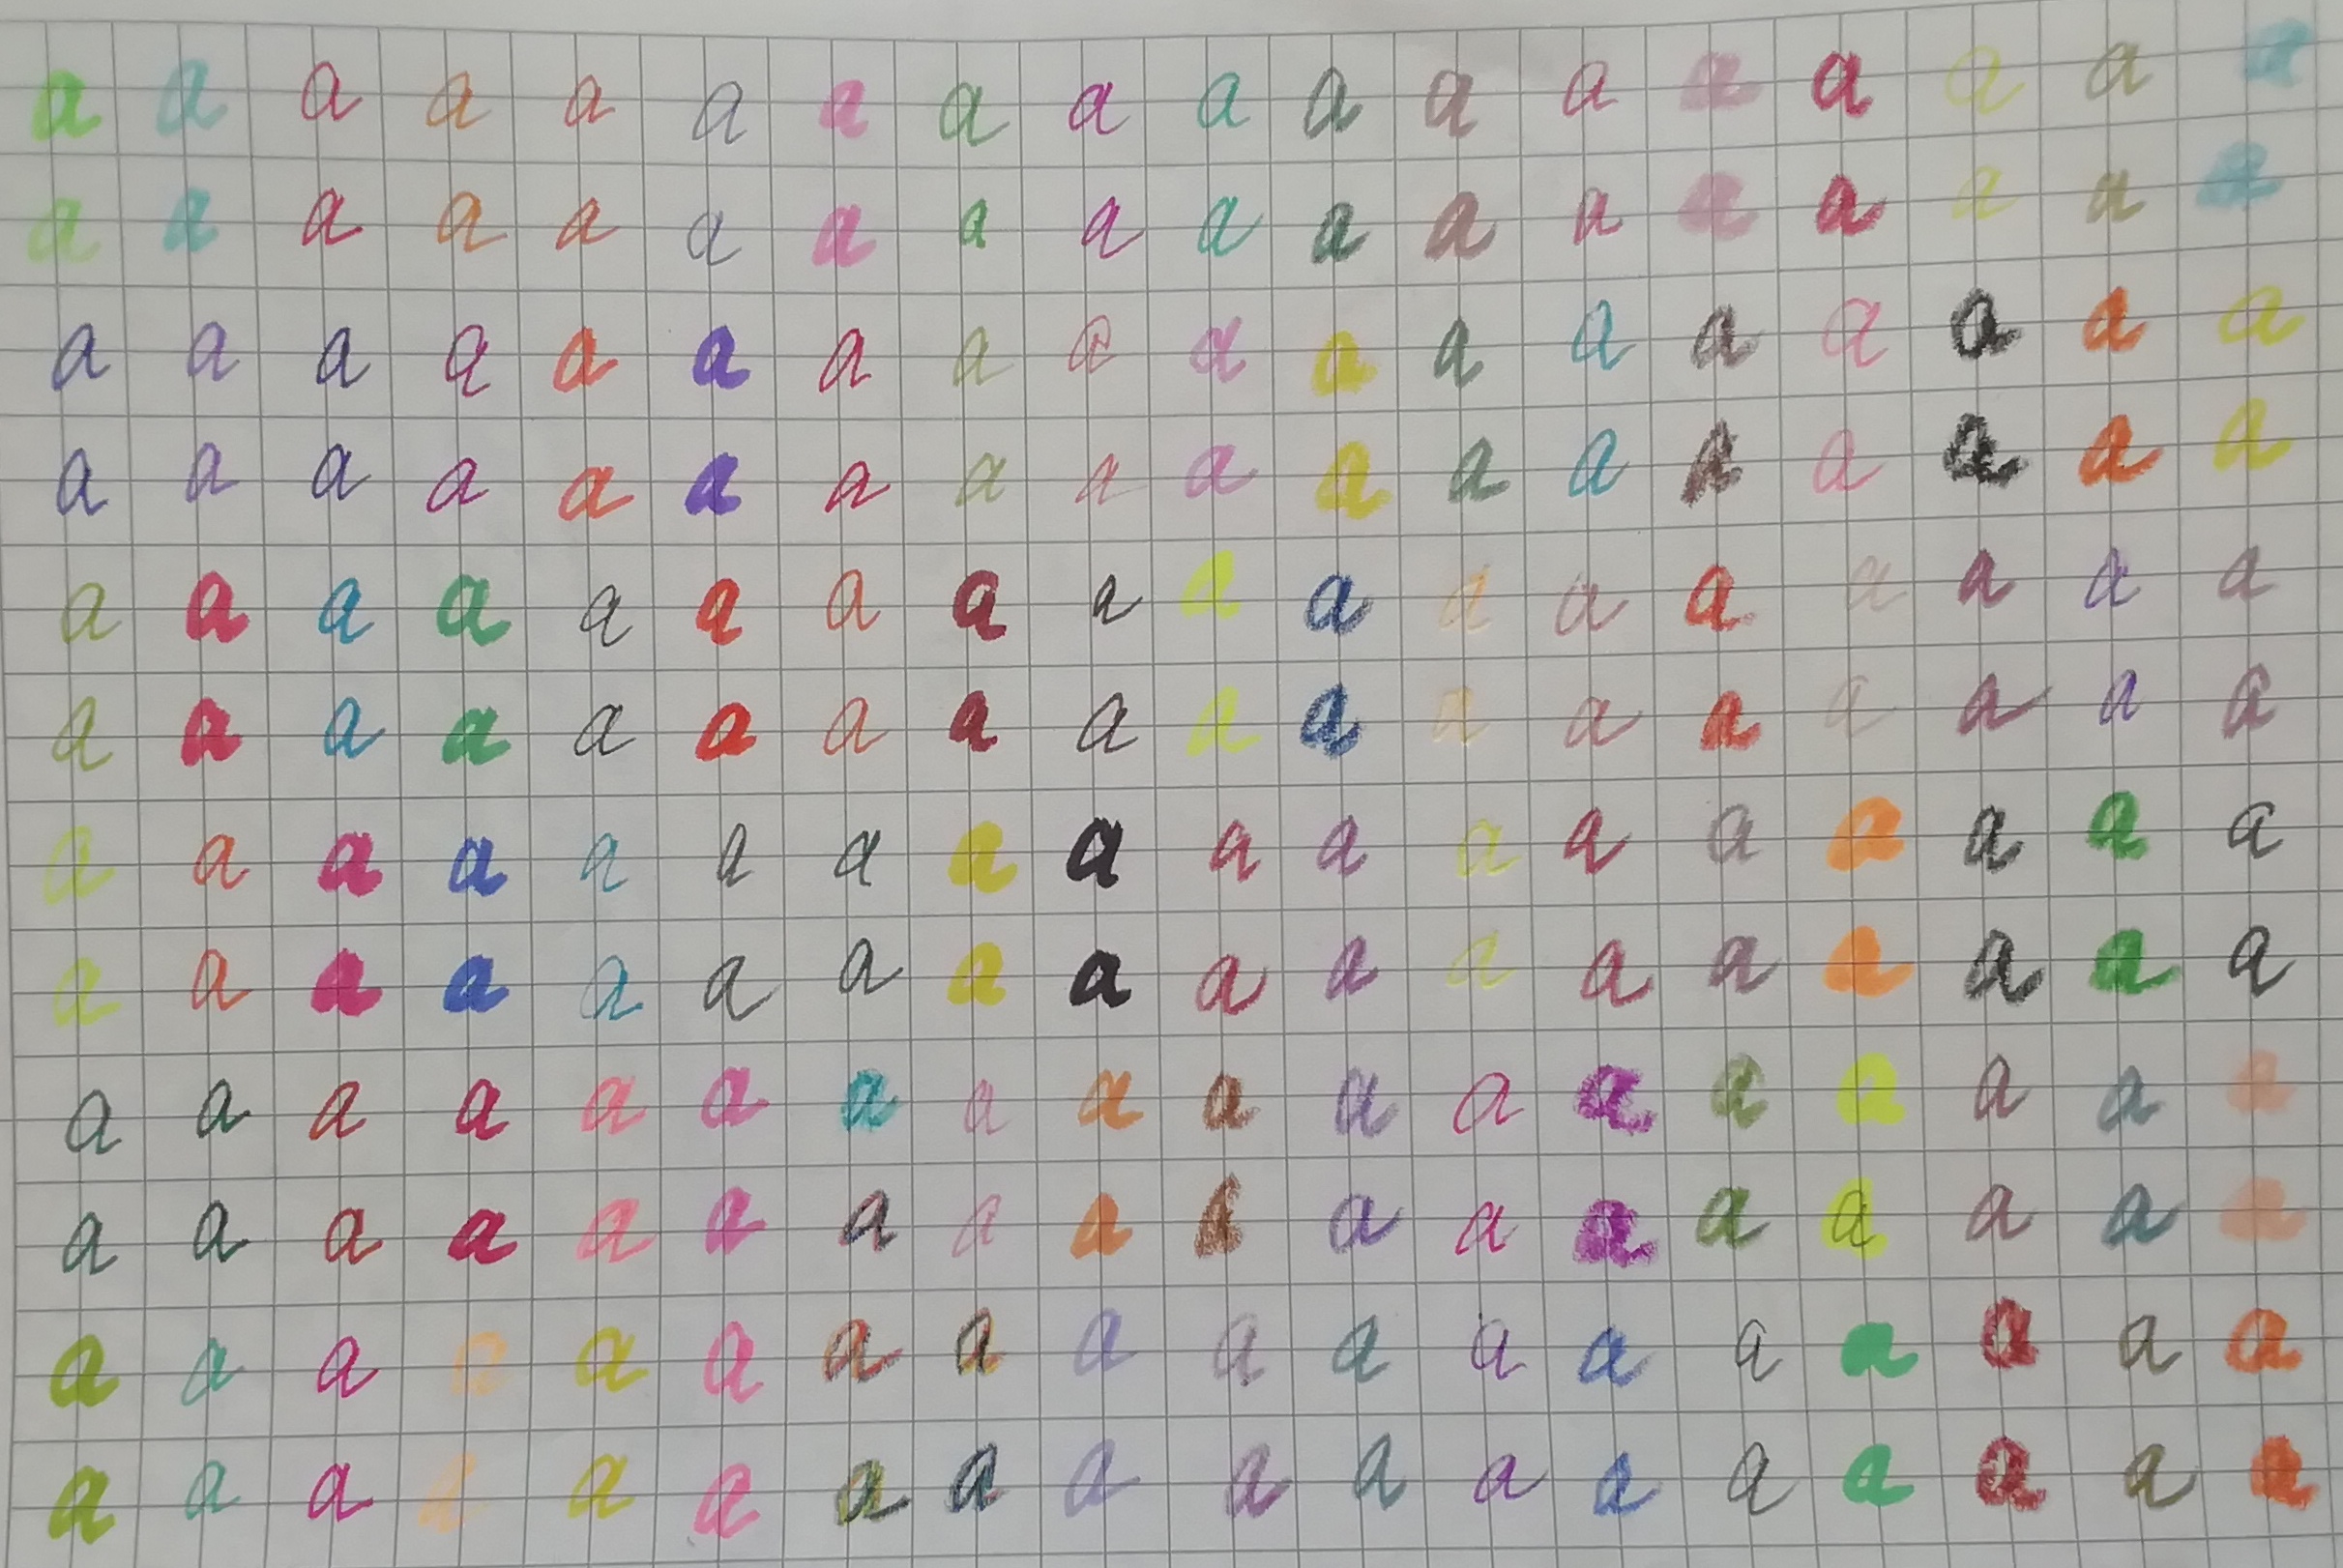 a a a a a a a a a a a a a a a a a a
a a a a a a a a a a a a a a a a a a
a a a a a a a a a a a a a a a a a a
a a a a a a a a a a a a a a a a a a
a a a a a a a a a a a a a a a a a a
a a a a a a a a a a a a a a a a a a
a a a a a a a a a a a a a a a a a a
a a a a a a a a a a a a a a a a a a
a a a a a a a a a a a a a a a a a a
a a a a a a a a a a a a a a a a a a
a a a a a a a a a a a a a a a a a a
a a a a a a a a a a a a a a a a a a